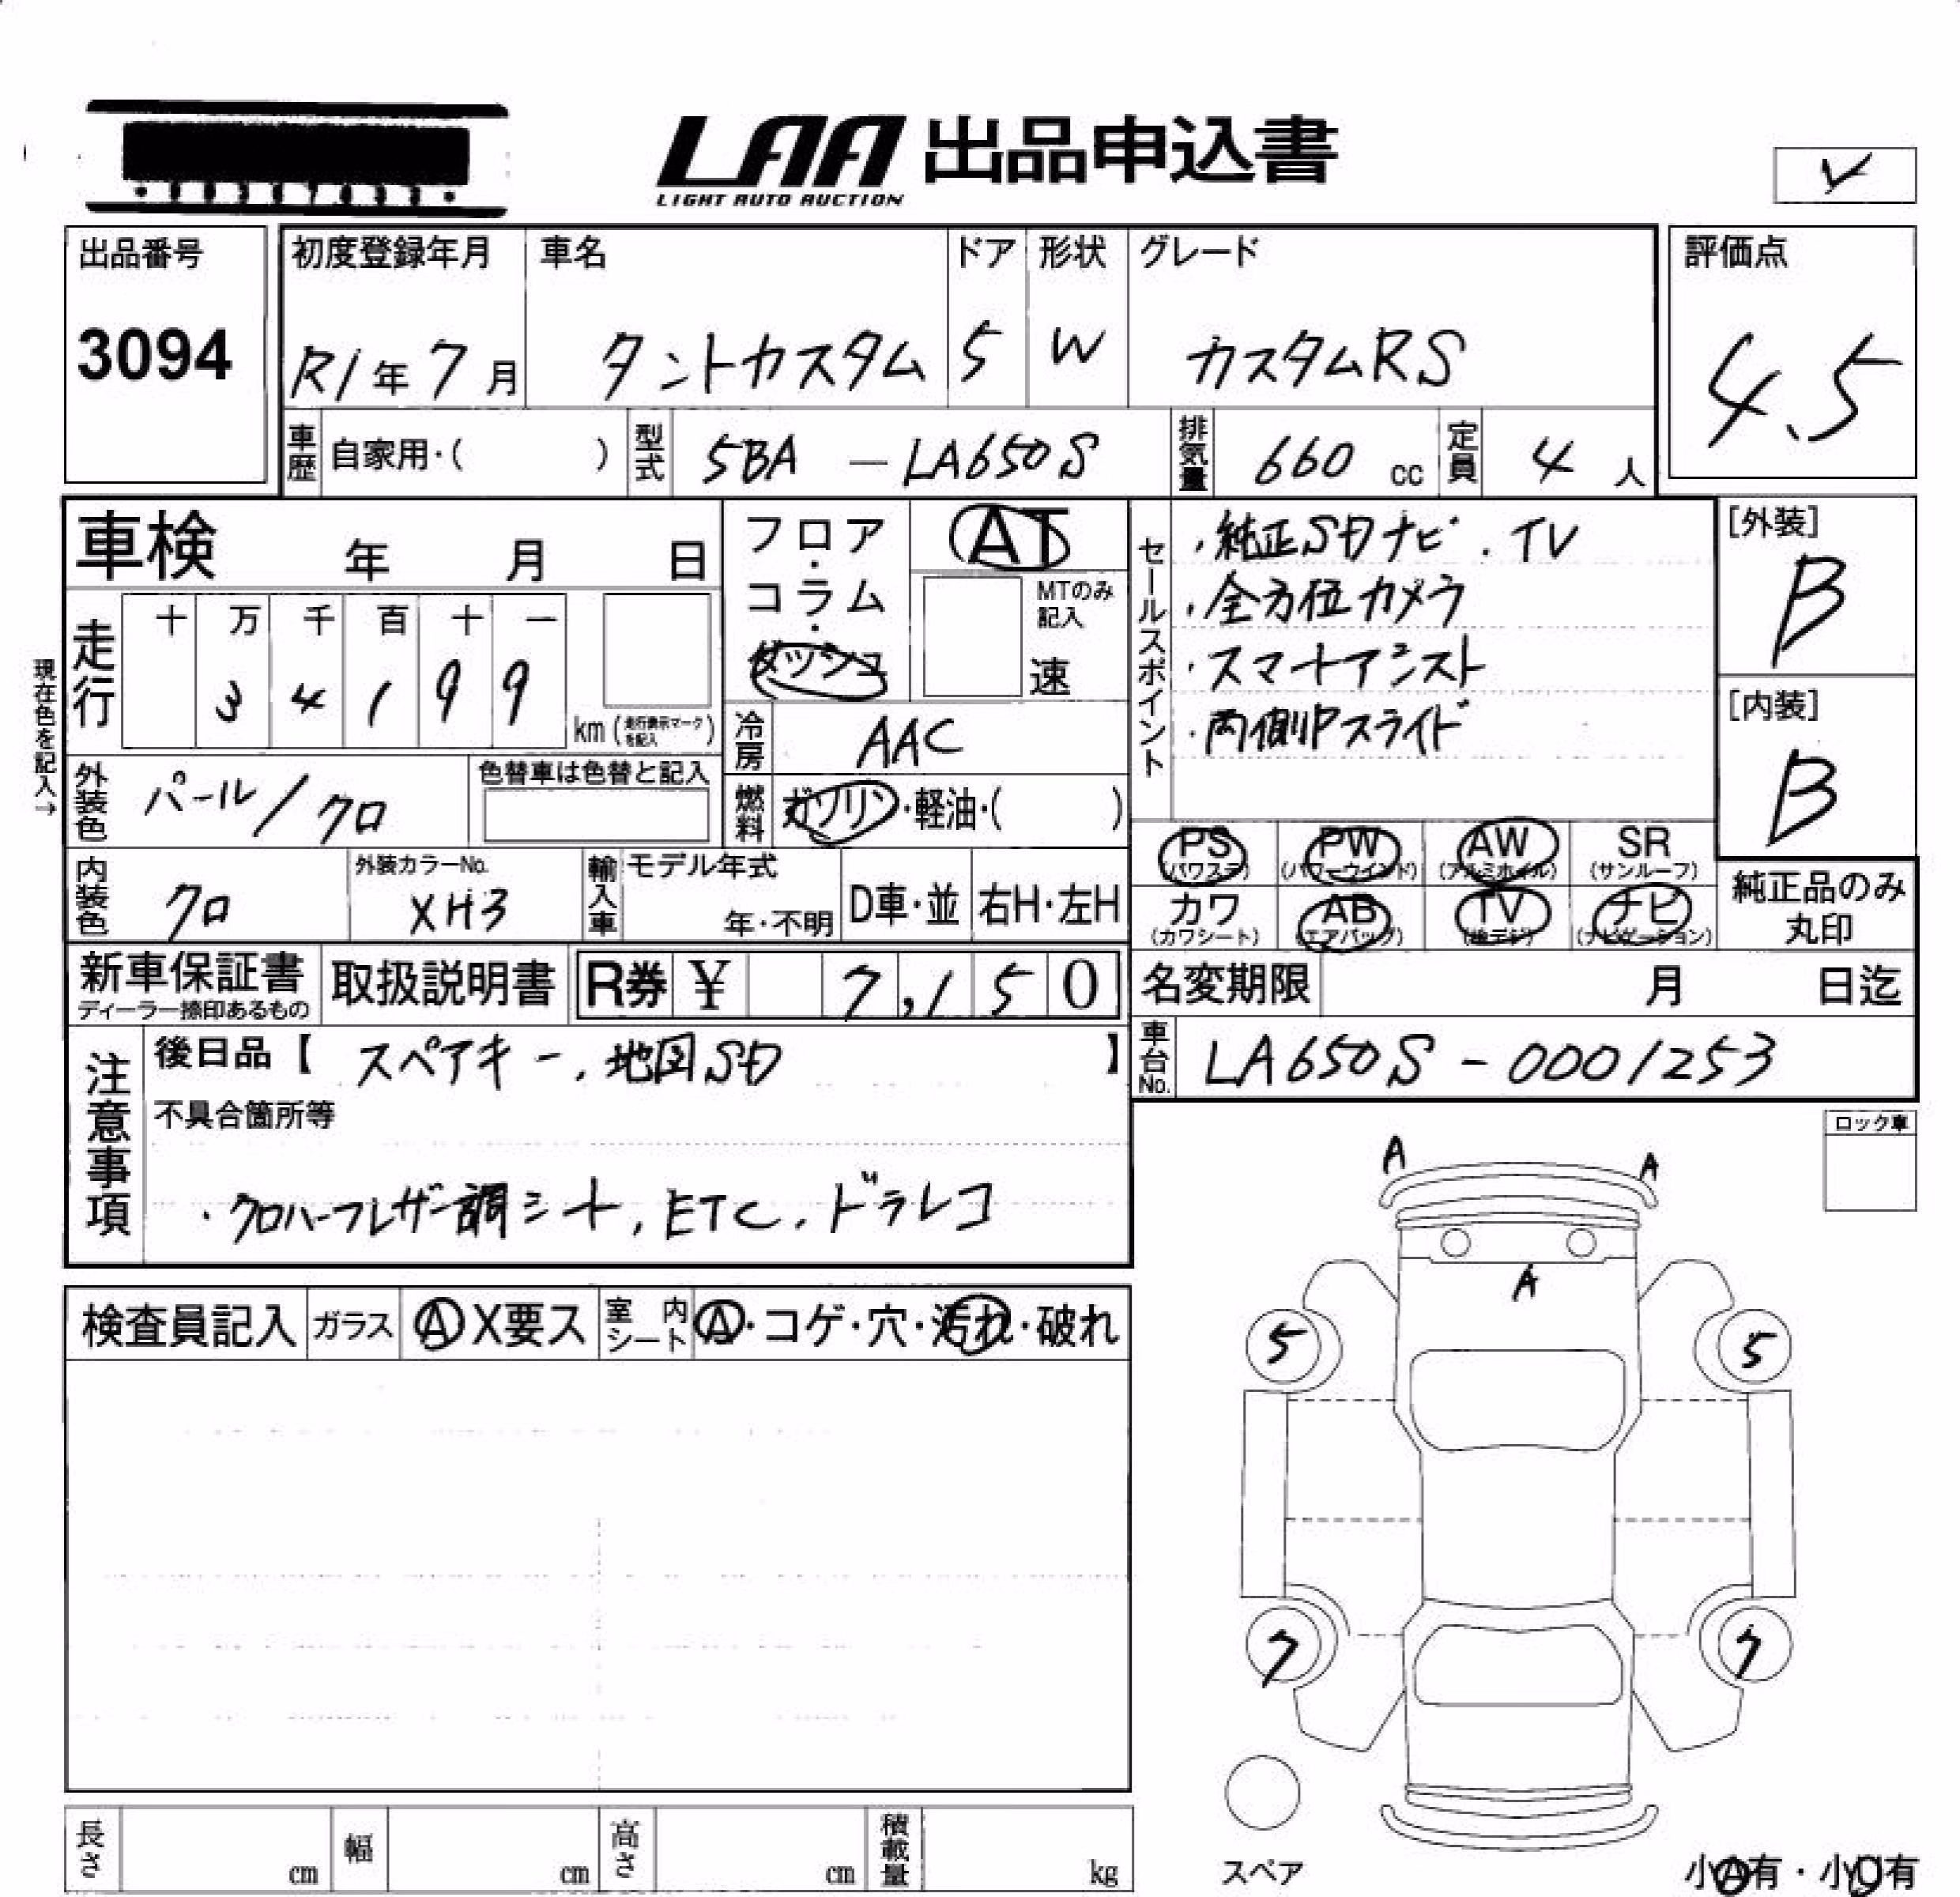 LAA 出品申込書
LIGHT AUTO AUCTION
出品番号
3094
初度登録年月
R1年7月
車名
タントカスタム
ドア
5
形状
W
グレード
カスタムRS
評価点
4.5
車歴 自家用・( )
型式 5BA — LA650S
排気量 660 cc
定員 4 人
車検 年 月 日
走行 十 万 千 百 十 一
3 4 1 9 9
km (走行表示マークを記入)
現在色を記入→
外装色 パール/クロ
色替車は色替と記入
内装色 クロ
外装カラーNo.
XH3
フロア・コラム・ダッシュ
AT
MTのみ記入
速
冷房 AAC
燃料 ガソリン・軽油・( )
輸入車 モデル年式
年・不明
D車・並 右H・左H
セールスポイント
・純正SDナビ・TV
・全方位カメラ
・スマートアシスト
・両側Pスライド
[外装]
B
[内装]
B
PS (パワステ) PW (パワーウインド) AW (アルミホイル) SR (サンルーフ)
カワ (カワシート) AB (エアバッグ) TV (地デジ) ナビ (ナビゲーション)
純正品のみ
丸印
新車保証書
ディーラー捺印あるもの
取扱説明書
R券 ¥ 7,150
名変期限 月 日迄
車台No. LA650S-0001253
注意事項
後日品【 スペアキー、地図SD 】
不具合箇所等
・クロハーフレザー調シート, ETC, ドラレコ
ロック車
A A
A
5 5
7 7
検査員記入 ガラス A X要ス 室内シート A・コゲ・穴・汚れ・破れ
長さ cm 幅 cm 高さ cm 積載量 kg
スペア
小A有・小U有